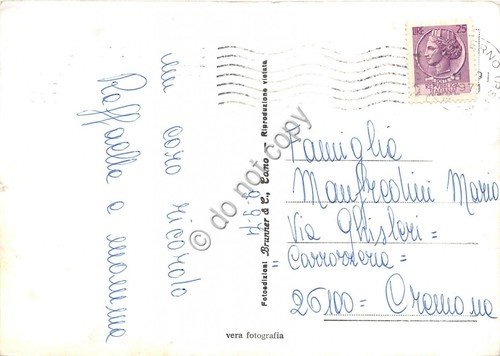 un caro ricordo
Raffaella e mamma
Fotoedizioni Brunner & C., Como — Riproduzione vietata
LIRE 25
Famiglia
Manfredini Mario
Via Ghisleri =
Carrozzeria =
26100 = Cremona
vera fotografia
© do not copy